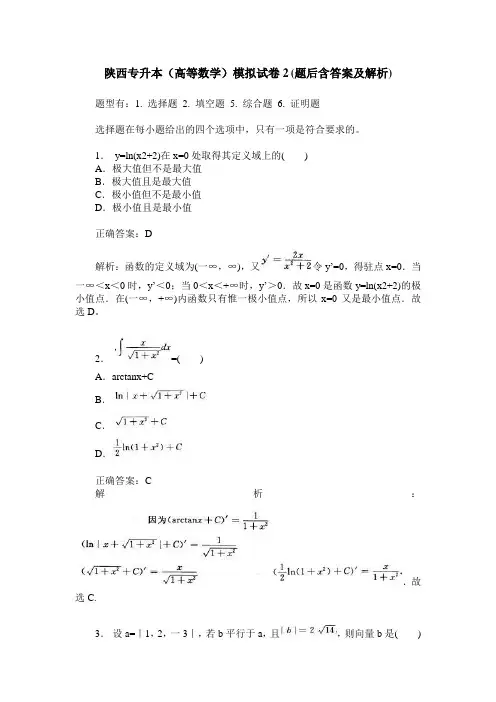 陕西专升本（高等数学）模拟试卷2(题后含答案及解析)
题型有：1. 选择题 2. 填空题 5. 综合题 6. 证明题
选择题在每小题给出的四个选项中，只有一项是符合要求的。
1． y=ln(x2+2)在x=0处取得其定义域上的( )
A．极大值但不是最大值
B．极大值且是最大值
C．极小值但不是最小值
D．极小值且是最小值
正确答案：D
解析：函数的定义域为(一∞，∞)，又y′=2x/(x²+2)令y’=0，得驻点x=0．当
一∞＜x＜0时，y’＜0；当0＜x＜+∞时，y’＞0．故x=0是函数y=ln(x2+2)的极
小值点．在(一∞，+∞)内函数只有惟一极小值点，所以x=0又是最小值点．故
选D。
2．∫x/√(1+x²)dx=( )
A．arctanx+C
B．ln|x+√(1+x²)|+C
C．√(1+x²)+C
D．½ln(1+x²)+C
正确答案：C
解析：
因为(arctanx+C)′=1/(1+x²)
(ln|x+√(1+x²)|+C)′=1/√(1+x²)
(√(1+x²)+C)′=x/√(1+x²) (½ln(1+x²)+C)′=x/(1+x²)．故
选C.
3． 设a=∣1，2，一3∣，若b平行于a，且|b|=2√14，则向量b是( )